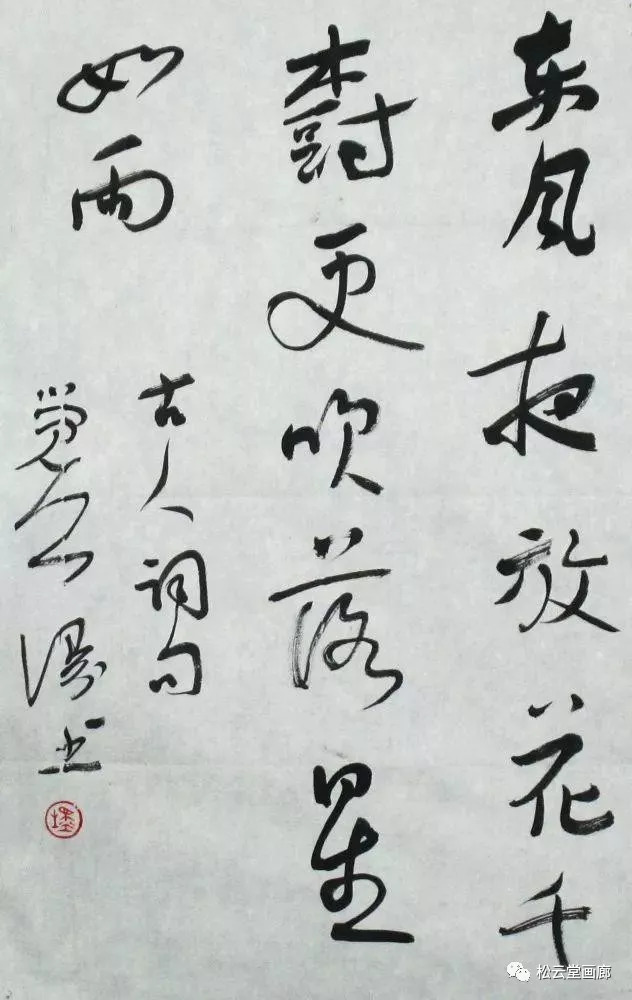 东风夜放花千
树更吹落星
如雨
古人词句
松云堂画廊